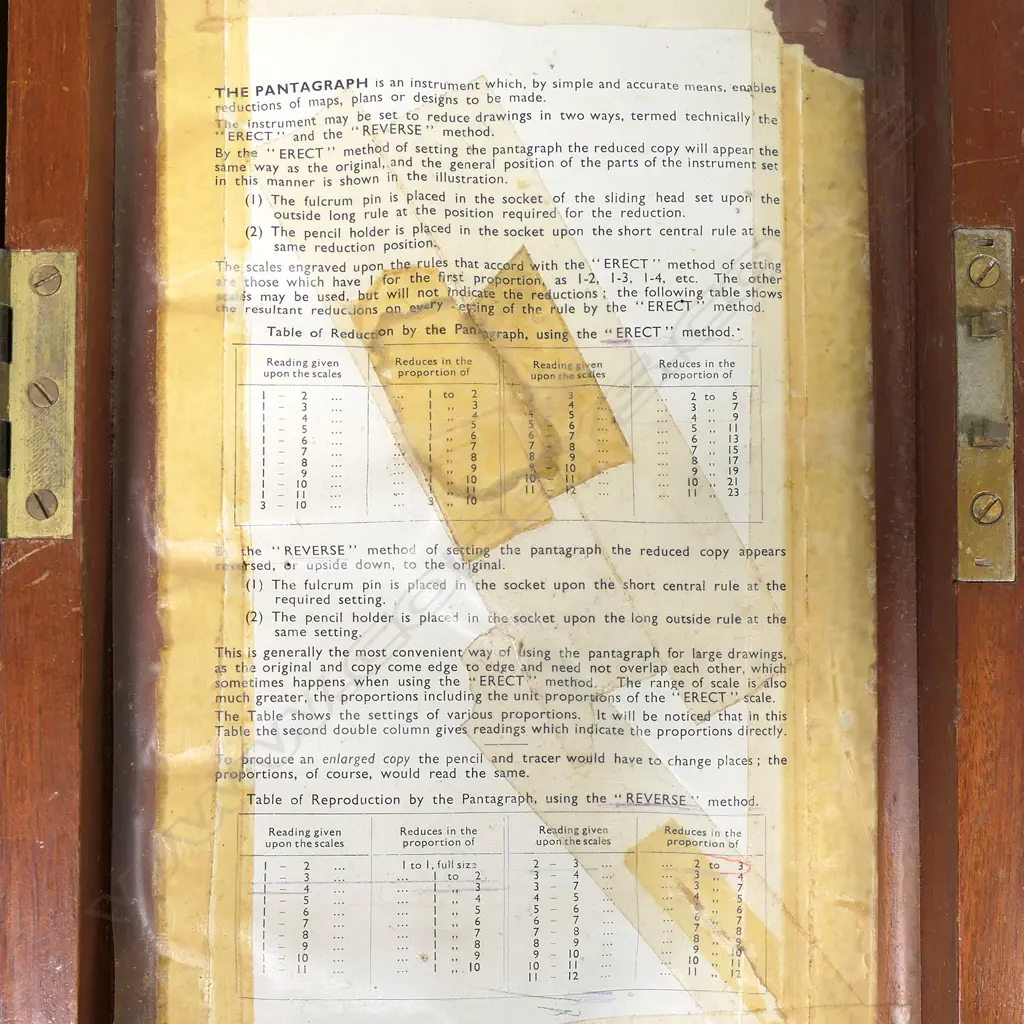 THE PANTAGRAPH is an instrument which, by simple and accurate means, enables
reductions of maps, plans or designs to be made.
The instrument may be set to reduce drawings in two ways, termed technically the
“ERECT” and the “REVERSE” method.
By the “ERECT” method of setting the pantagraph the reduced copy will appear the
same way as the original, and the general position of the parts of the instrument set
in this manner is shown in the illustration.
(1) The fulcrum pin is placed in the socket of the sliding head set upon the
outside long rule at the position required for the reduction.
(2) The pencil holder is placed in the socket upon the short central rule at the
same reduction position.
The scales engraved upon the rules that accord with the “ERECT” method of setting
are those which have 1 for the first proportion as 1-2, 1-3, 1-4, etc. The other
scales may be used, but will not indicate the reductions; the following table shows
the resultant reductions on every setting of the rule by the “ERECT” method.
Table of Reduction by the Pantagraph, using the “ERECT” method.
Reading given upon the scales Reduces in the proportion of Reading given upon the scales Reduces in the proportion of
1 – 2 ... ... 1 to 2 3 ... ... 2 to 5
1 – 3 ... ... 1 ,, 3 4 ... ... 3 ,, 7
1 – 4 ... ... 1 ,, 4 4 – 5 ... ... 4 ,, 9
1 – 5 ... ... 1 ,, 5 5 – 6 ... ... 5 ,, 11
1 – 6 ... ... 1 ,, 6 6 – 7 ... ... 6 ,, 13
1 – 7 ... ... 1 ,, 7 7 – 8 ... ... 7 ,, 15
1 – 8 ... ... 1 ,, 8 8 – 9 ... ... 8 ,, 17
1 – 9 ... ... 1 ,, 9 9 – 10 ... ... 9 ,, 19
1 – 10 ... ... 1 ,, 10 10 – 11 ... ... 10 ,, 21
1 – 11 ... ... 1 ,, 11 11 – 12 ... ... 11 ,, 23
3 – 10 ... ... 3 ,, 10
By the “REVERSE” method of setting the pantagraph the reduced copy appears
reversed, or upside down, to the original.
(1) The fulcrum pin is placed in the socket upon the short central rule at the
required setting.
(2) The pencil holder is placed in the socket upon the long outside rule at the
same setting.
This is generally the most convenient way of using the pantagraph for large drawings,
as the original and copy come edge to edge and need not overlap each other, which
sometimes happens when using the “ERECT” method. The range of scale is also
much greater, the proportions including the unit proportions of the “ERECT” scale.
The Table shows the settings of various proportions. It will be noticed that in this
Table the second double column gives readings which indicate the proportions directly.
To produce an enlarged copy the pencil and tracer would have to change places; the
proportions, of course, would read the same.
Table of Reproduction by the Pantagraph, using the “REVERSE” method.
Reading given upon the scales Reduces in the proportion of Reading given upon the scales Reduces in the proportion of
1 – 2 ... 1 to 1, full size 2 – 3 ... ... 2 to 3
1 – 3 ... ... 1 to 2 3 – 4 ... ... 3 ,, 4
1 – 4 ... ... 1 ,, 3 3 – 7 ... ... 3 ,, 7
1 – 5 ... ... 1 ,, 4 4 – 5 ... ... ,, 5
1 – 6 ... ... 1 ,, 5 5 – 6 ... ... 5 ,, 6
1 – 7 ... ... 1 ,, 6 6 – 7 ... ... 6 ,, 7
1 – 8 ... ... 1 ,, 7 7 – 8 ... ... 7 ,, 8
1 – 9 ... ... 1 ,, 8 8 – 9 ... ... 8 ,, 9
1 – 10 ... ... 1 ,, 9 9 – 10 ... ... 9 ,, 10
1 – 11 ... ... 1 ,, 10 10 – 11 ... ... 10 ,, 11
11 – 12 ... ... 11 ,, 12